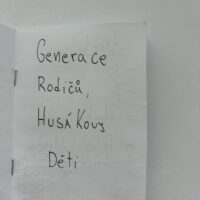 Generace
Rodičů,
Husákovy
Děti